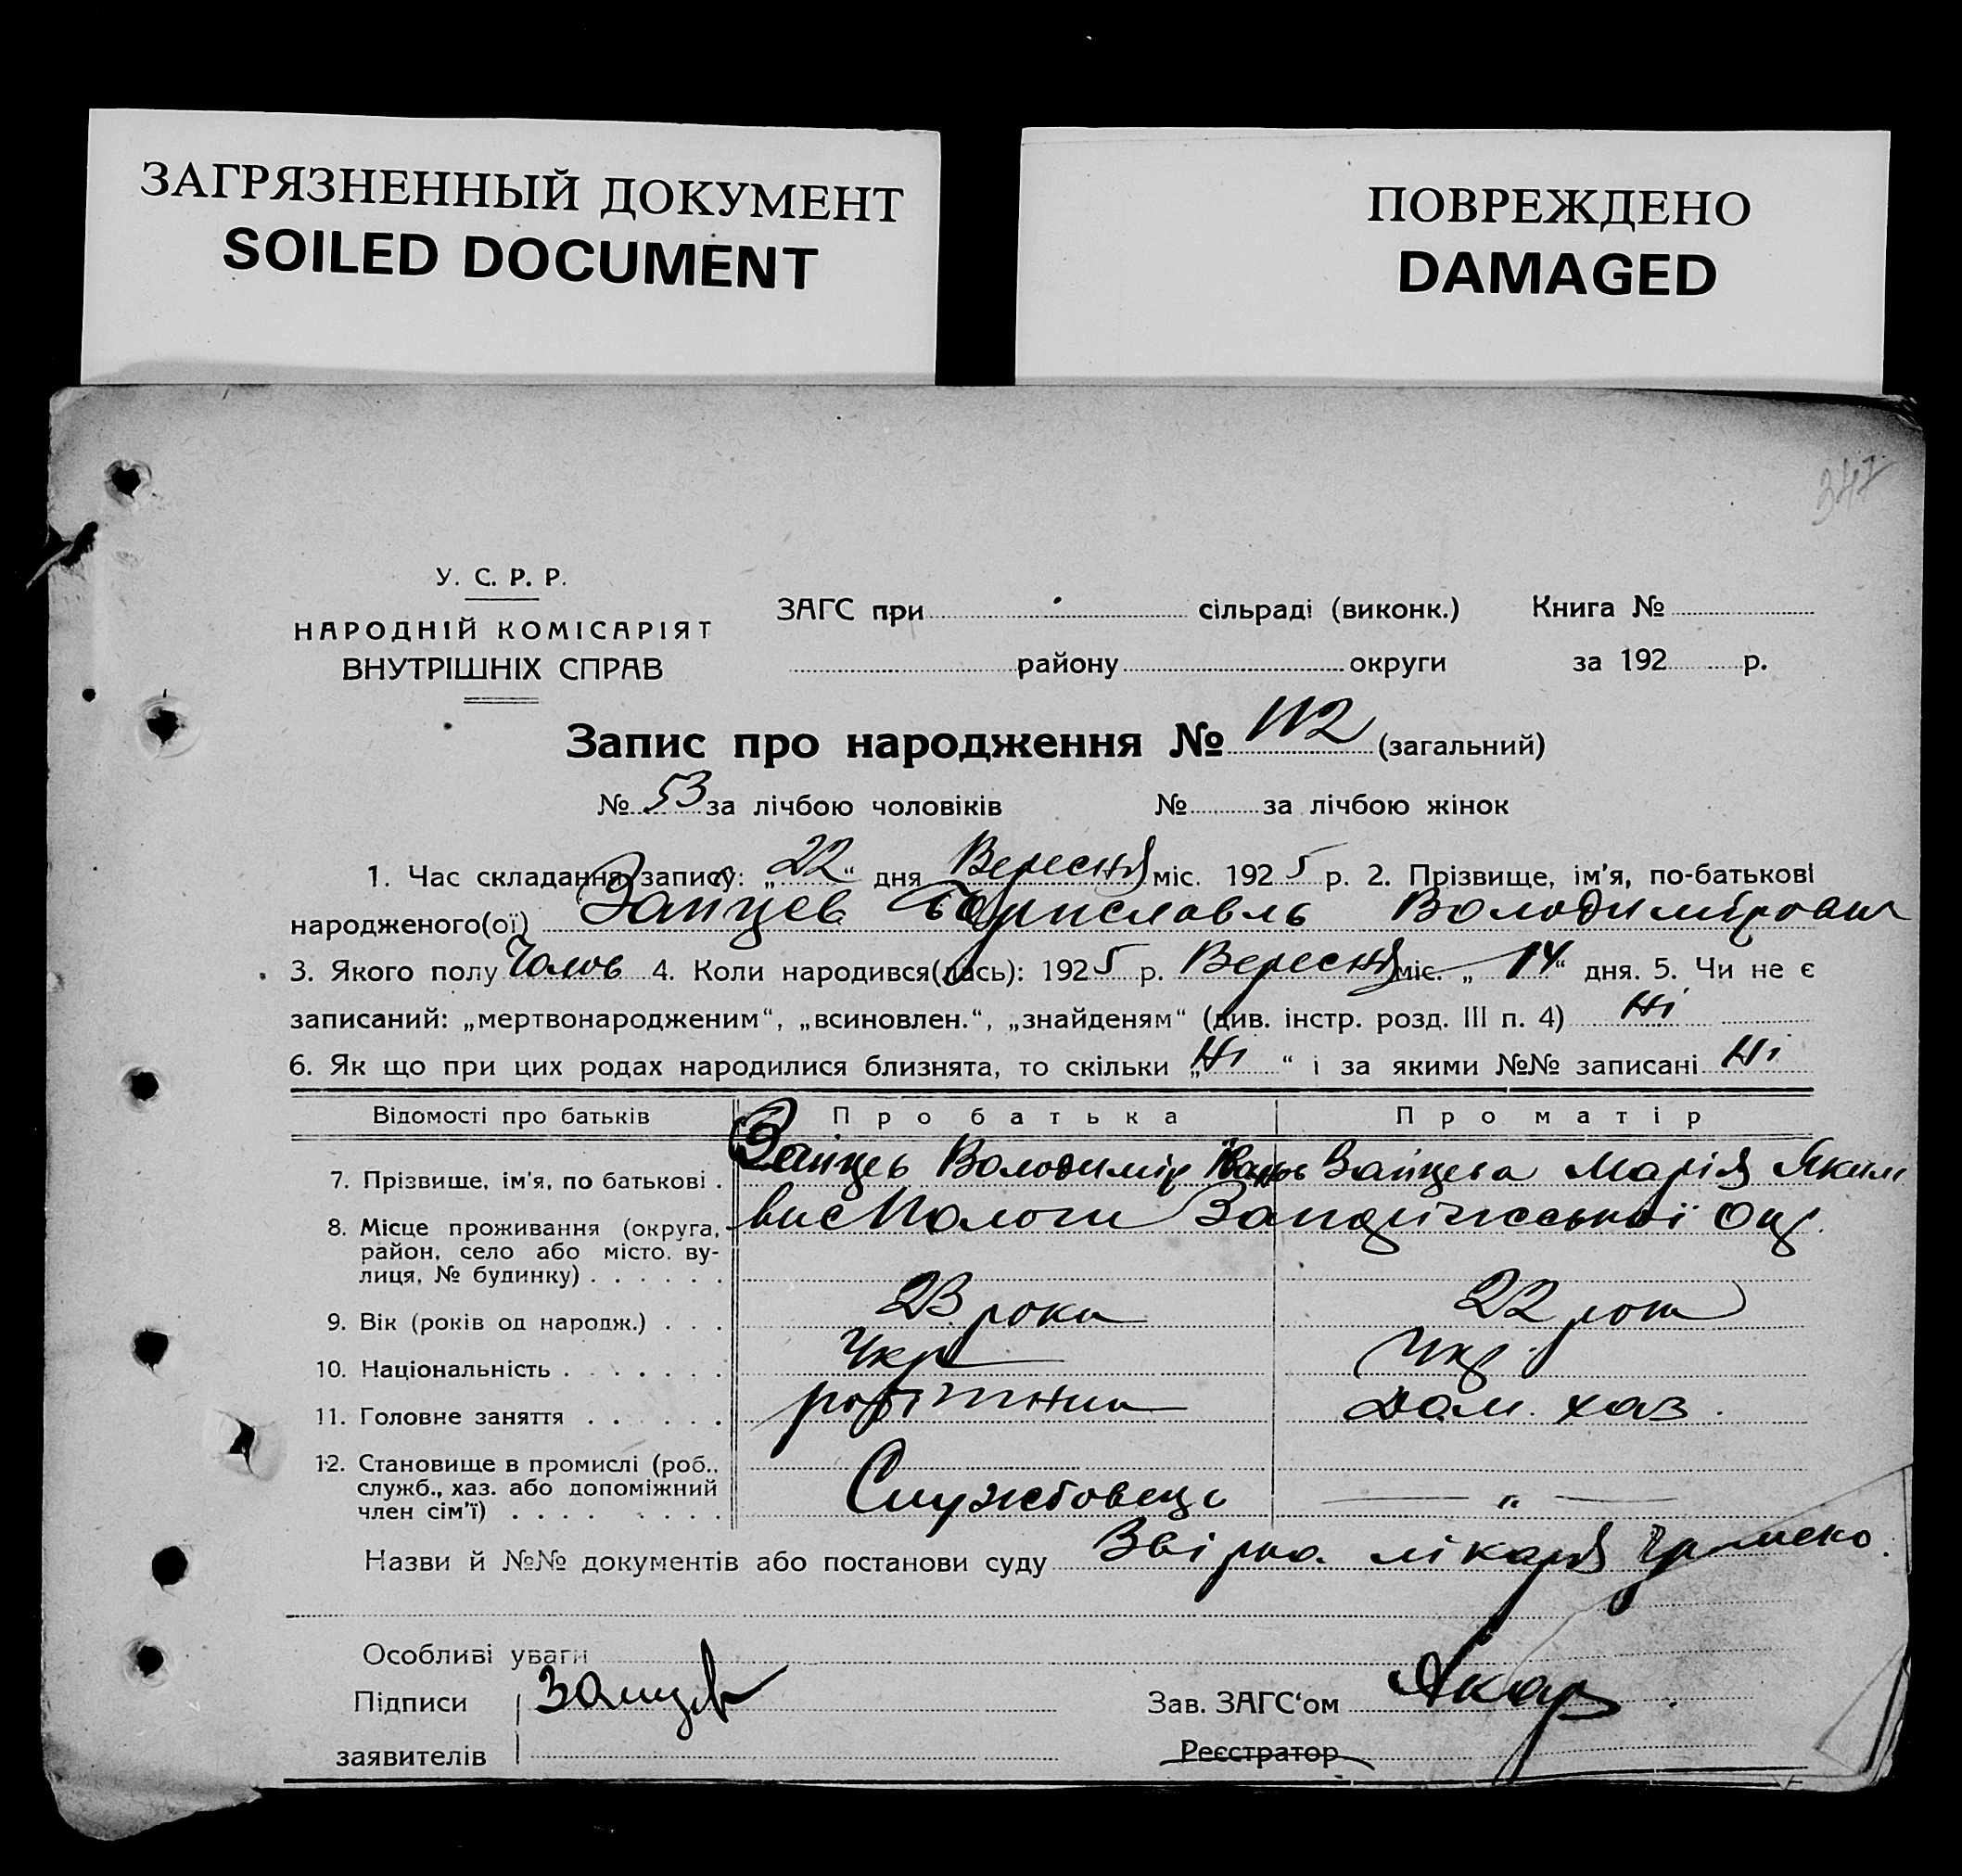 ЗАГРЯЗНЕННЫЙ ДОКУМЕНТ
SOILED DOCUMENT
ПОВРЕЖДЕНО
DAMAGED
347
У. С. Р. Р.
НАРОДНІЙ КОМІСАРІЯТ
ВНУТРІШНІХ СПРАВ
ЗАГС при сільраді (виконк.) Книга №
району округи за 192 р.
Запис про народження № 112 (загальний)
№ 53 за лічбою чоловіків № за лічбою жінок
1. Час складання запису: „22“ дня Вересня міс. 1925 р. 2. Прізвище, ім'я, по-батькові
народженого(ої) Зайцев Бориславль Володимірович
3. Якого полу Чолов 4. Коли народився(лась): 1925 р. Вересня міс. „14“ дня. 5. Чи не є
записаний: „мертвонародженим“, „всиновлен.“, „знайденям“ (див. інстр. розд. III п. 4) Ні
6. Як що при цих родах народилися близнята, то скільки „Ні“ і за якими №№ записані Ні
Відомості про батьків Про батька Про матір
7. Прізвише, ім'я, по батькові . Зайцев Володимір Іванов Зайцева Марія Яким
8. Місце проживання (округа, Пологи Запоріжської Окр.
район, село або місто, ву-
лиця, № будинку) . . . . . .
9. Вік (років од народж.) . . . 23 роки 22 роки
10. Національність . . . . . . . Укр Укр.
11. Головне заняття . . . . . . робітник Дом. хаз.
12. Становище в промислі (роб.,
служб., хаз. або допоміжний Службовець — " —
член сім'ї) . . . . . . . .
Назви й №№ документів або постанови суду лікаря
Особливі уваги
Підписи Зайцев Зав. ЗАГС'ом
заявителів Реєстратор